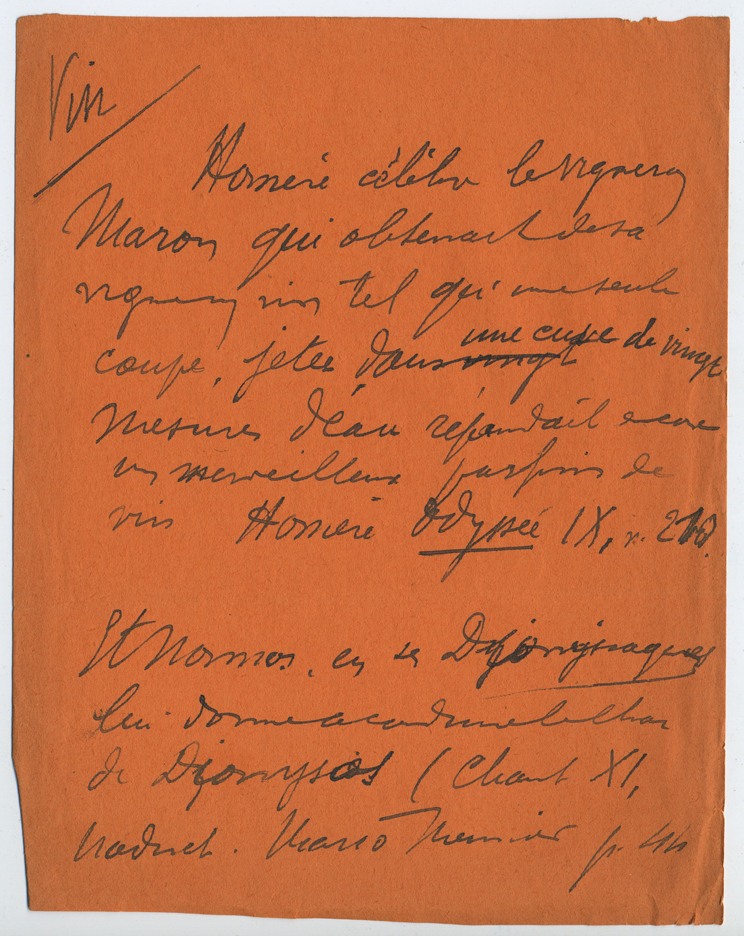 Vin
Homère célèbre le vigneron
Maron qui obtenait de sa
vigne un vin tel qu'une seule
coupe, jetée dans vingt une cuve de vingt
mesures d'eau répandait encore
un merveilleux parfum de
vin Homère Odyssée IX, v. 210.
Et Nonnos, en ses Dionysiaques
lui donne
de Dionysos (Chant XI,
traduct. Mario Meunier p. 44